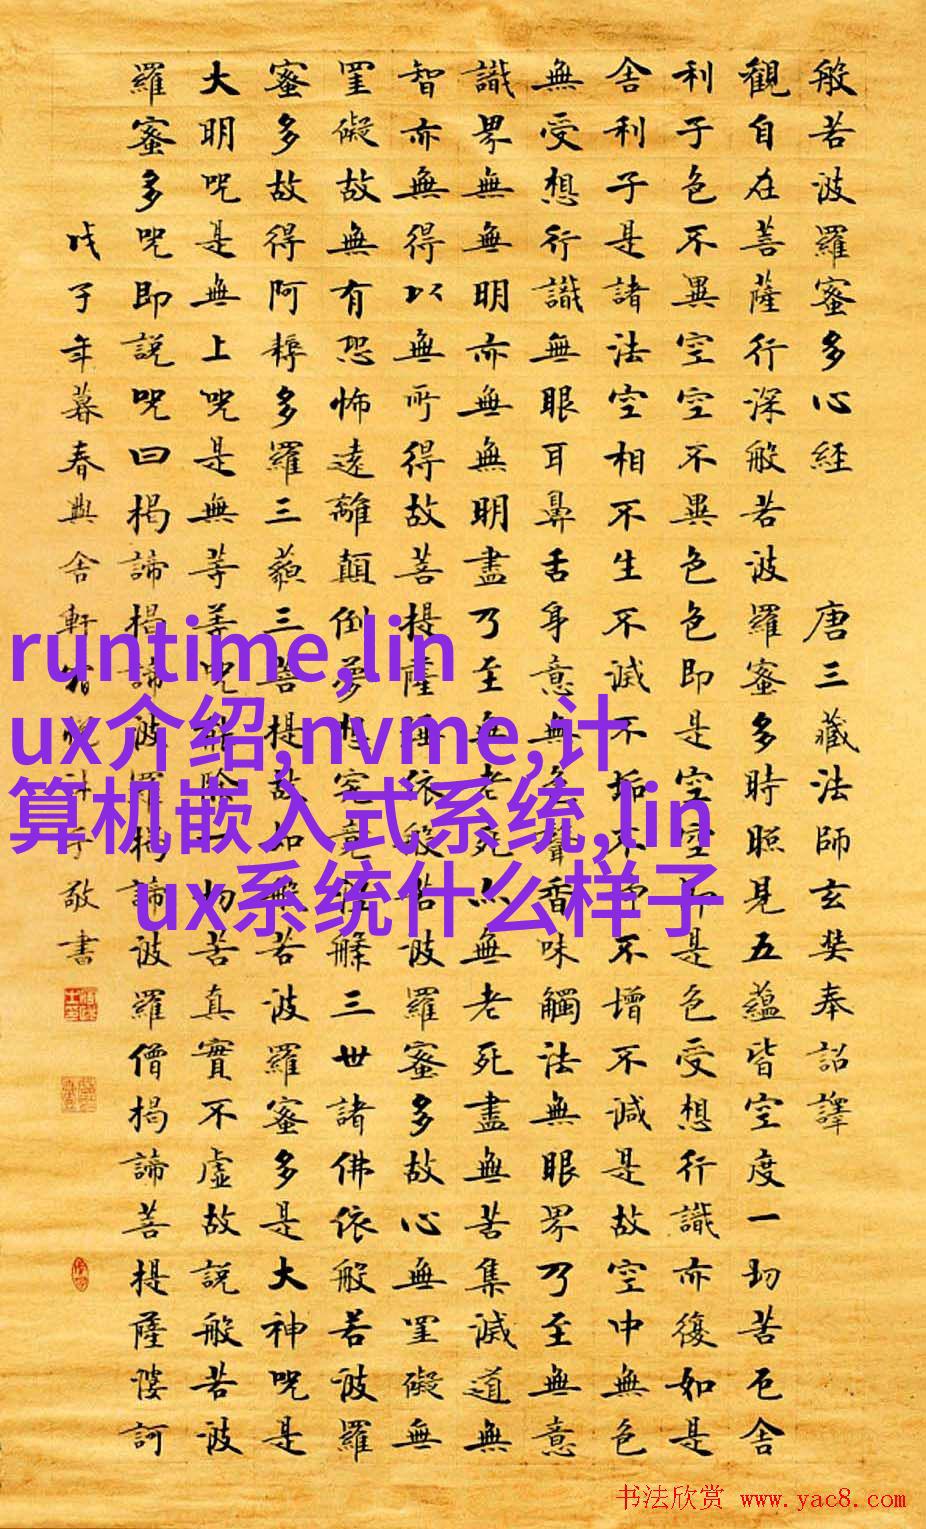 般若波羅蜜多心経 唐三藏法師玄奘奉詔譯
觀自在菩薩行深般若波羅蜜多時照見五蘊皆空度一切苦厄舍
利子色不異空空不異色色即是空空即是色受想行識亦復如是
舍利子是諸法空相不生不滅不垢不淨不增不減是故空中無色
無受想行識無眼耳鼻舌身意無色聲香味觸法無眼界乃至無意
識界無無明亦無無明盡乃至無老死亦無老死盡無苦集滅道無
智亦無得以無所得故菩提薩埵依般若波羅蜜多故心無罣礙無
罣礙故無有恐怖遠離顛倒夢想究竟涅槃三世諸佛依般若波羅
蜜多故得阿耨多羅三藐三菩提故知般若波羅蜜多是大神咒是
大明咒是無上咒是無等等咒能除一切苦真實不虛故說般若波
羅蜜多咒即說咒曰揭諦揭諦波羅揭諦波羅僧揭諦菩提薩婆訶
戊子年暮春興舍軒 敬書
runtime,lin
ux介绍,nvme,计
算机嵌入式系统,lin
ux系统什么样子
书法欣赏 www.yac8.com